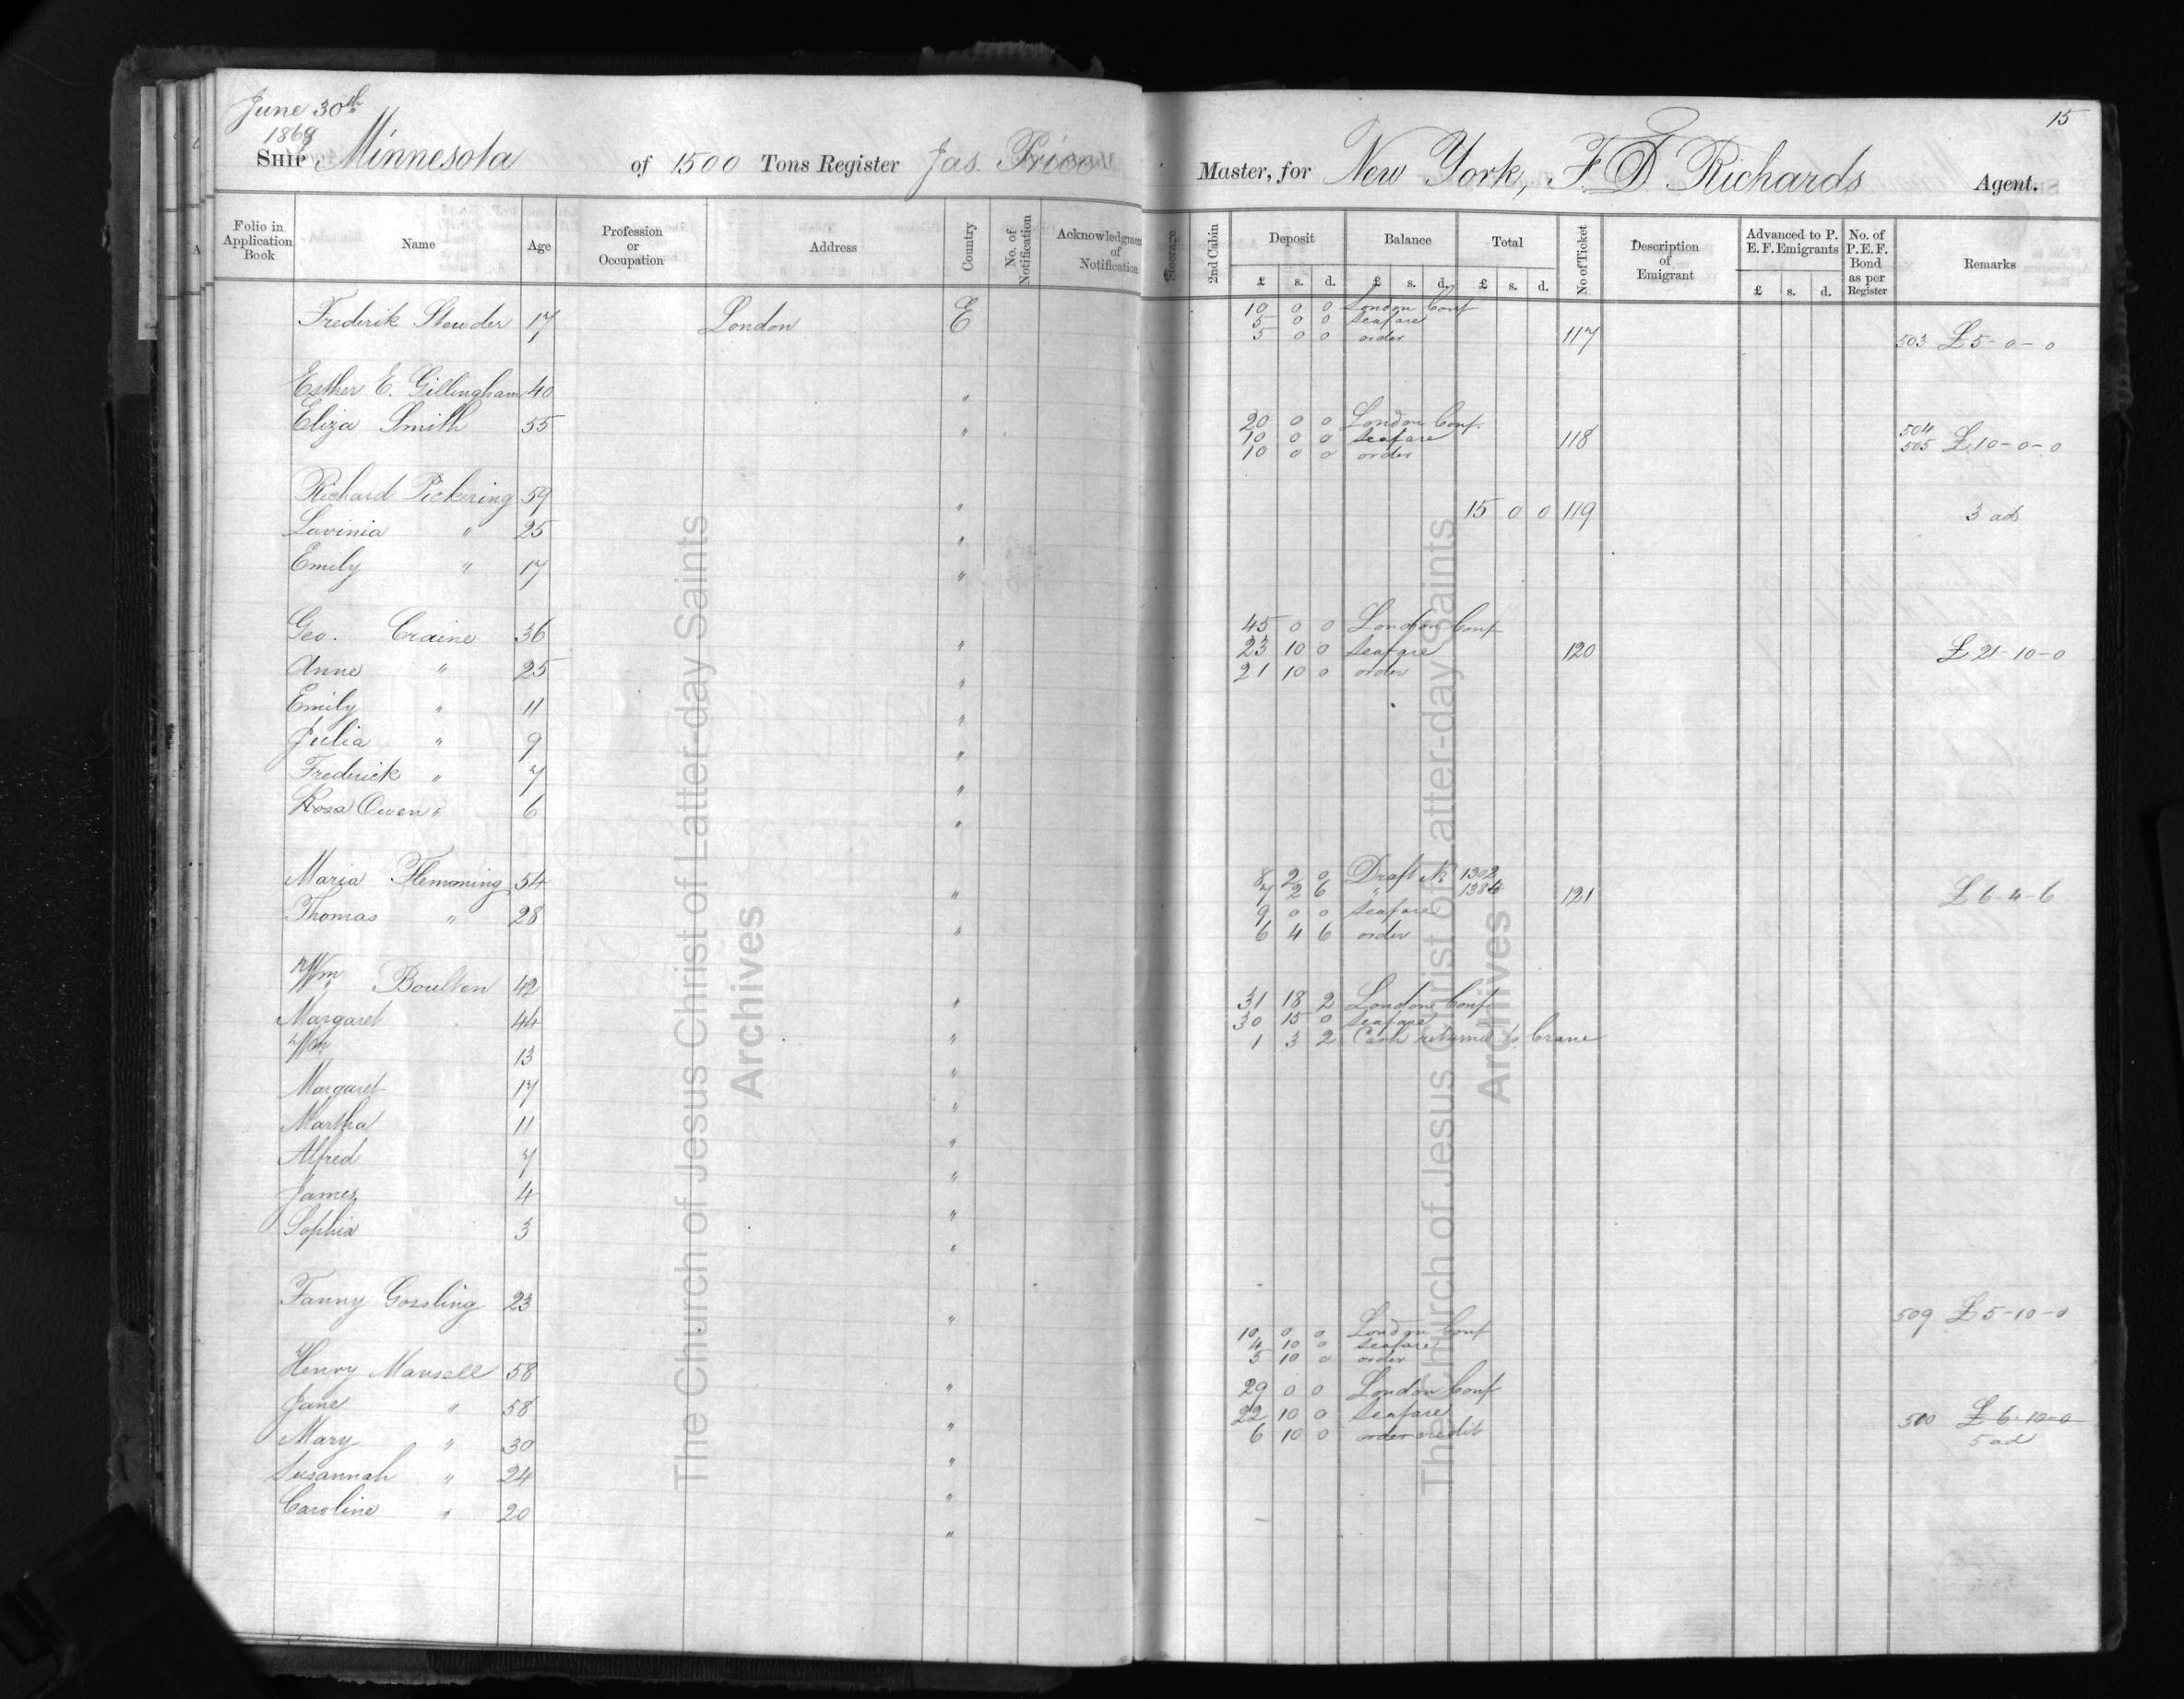 June 30th
1868
15
SHIP Minnesota of 1500 Tons Register Jas. Price Master, for New York, F. D. Richards Agent.
Folio in Application Book Name Age Profession or Occupation Address Country No. of Notification Acknowledgment of Notification Steerage 2nd Cabin Deposit Balance Total No of Ticket Description of Emigrant Advanced to P. E. F. Emigrants No. of P.E.F. Bond as per Register Remarks
£ s. d. £ s. d. £ s. d. £ s. d.
10 0 0 London Conf
Frederik 17 London E 5 0 0 Seafare
5 0 0 order 117 503 £5-0-0
Esther E. Gillingham 40 "
Eliza Smith 55 " 20 0 0 London Conf. 504
10 0 0 Seafare 118 505 £10-0-0
10 0 0 order
Richard Pickering 59 " 15 0 0 119 3 ad
Lavinia " 25 "
Emily " 17 "
Geo. Craine 36 " 45 0 0 London Conf
23 10 0 Seafare 120 £21-10-0
Anne " 25 " 21 10 0 order
Emily " 11 "
Julia " 9 "
Frederick " 7 "
Rosa Owen " 6 "
Maria Flemming 54 " 8 2 0 Draft No 1302
7 2 6 " 121 £6-4-6
Thomas " 28 " 9 0 0 Seafare
6 4 6 order
Wm Boulton 42 " 31 18 2 London Conf
Margaret 44 " 30 15 0 Seafare
Wm 13 " 1 3 2 Cash returned to Crane
Margaret 17 "
Martha 11 "
Alfred 7 "
James 4 "
Sophia 3 "
Fanny Gossling 23 " 509 £5-10-0
10 0 0 London Conf
4 10 0 Seafare
5 10 0 order
Henry Mansell 58 " 29 0 0 London Conf
Jane " 58 " 22 10 0 Seafare 500 £6-10-0
Mary " 30 " 6 10 0 order credit 5 ad
Susannah " 24 "
Caroline " 20 "
The Church of Jesus Christ of Latter-day Saints
Archives
The Church of Jesus Christ of Latter-day Saints
Archives